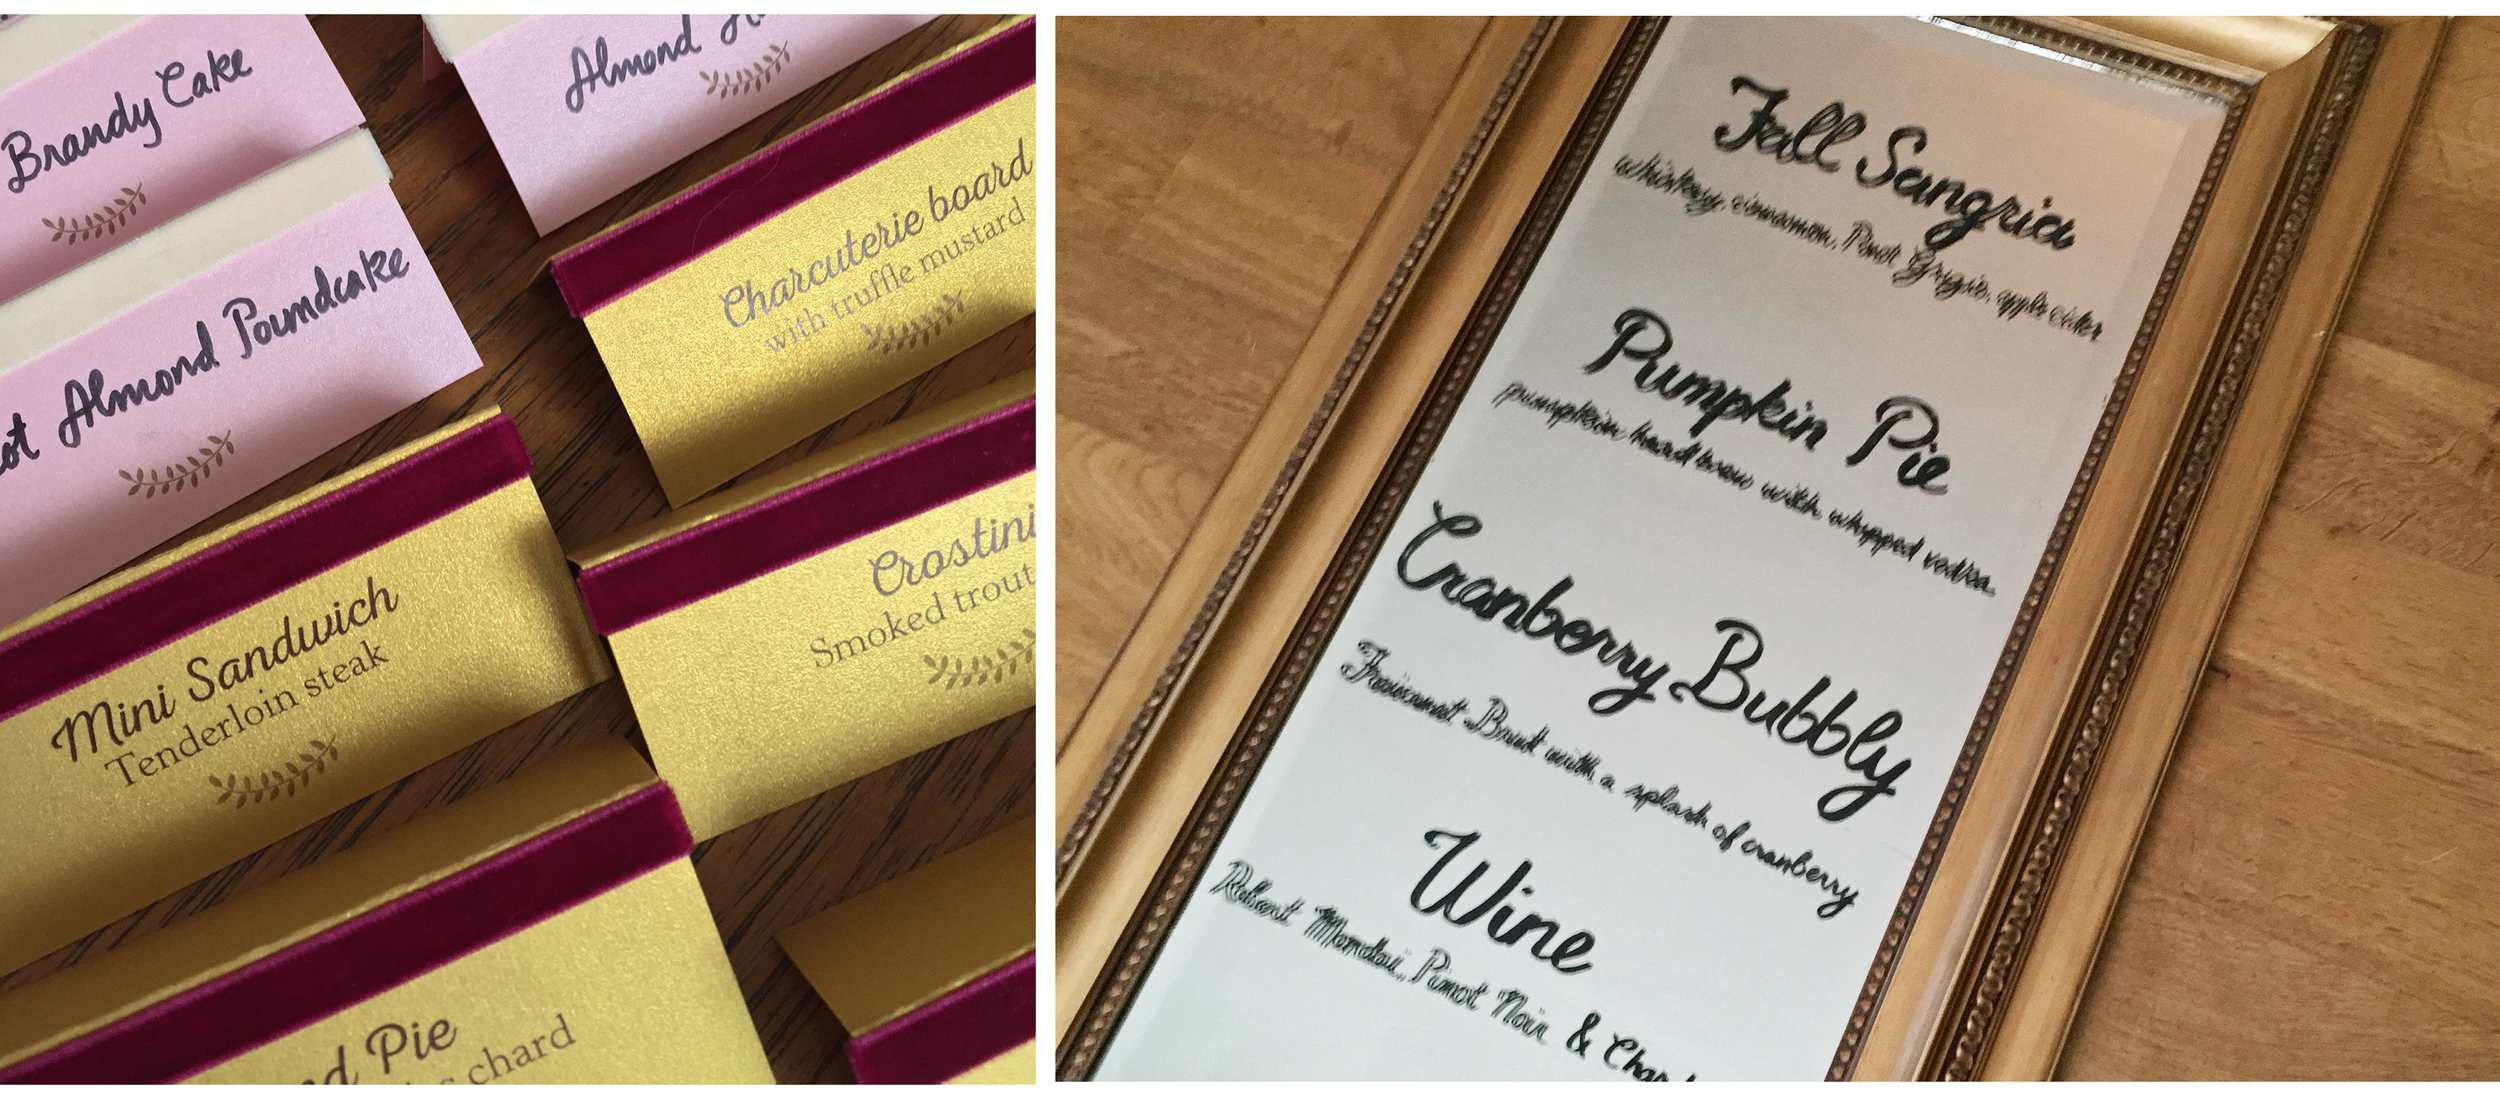 Brandy Cake
Almond
Almond Poundcake
Charcuterie board
with truffle mustard
Mini Sandwich
Tenderloin steak
Crostini
Smoked trout
Pie
chard
Fall Sangria
whiskey, cinnamon, Pinot Grigio, apple cider
Pumpkin Pie
pumpkin head brew with whipped vodka
Cranberry Bubbly
Freixenet Brut with a splash of cranberry
Wine
Robert Mondavi, Pinot Noir &